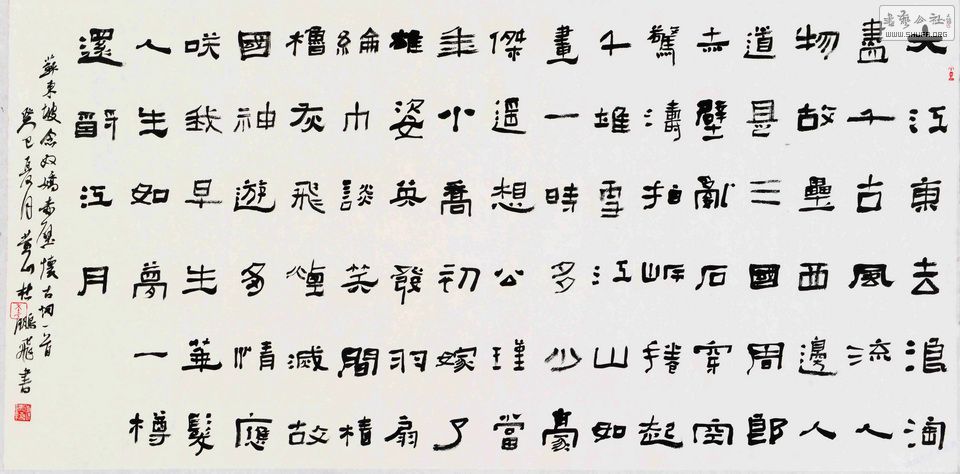 大江東去浪淘
盡千古風流人
物故壘西邊人
道是三國周郎
赤壁亂石穿空
驚濤拍岸捲起
千堆雪江山如
畫一時多少豪
傑遥想公瑾當
年小喬初嫁了
雄姿英發羽扇
綸巾談笑間樯
櫓灰飛煙滅故
國神遊多情應
咲我早生華髮
人生如夢一樽
還酹江月
蘇東坡念奴嬌赤壁懷古詞一首
癸巳夏月黄山杜鵬飛書
書藝公社
WWW.SHUFA.ORG